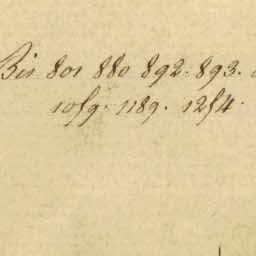 Bis 801 880 892. 893.
1059. 1189. 1254.